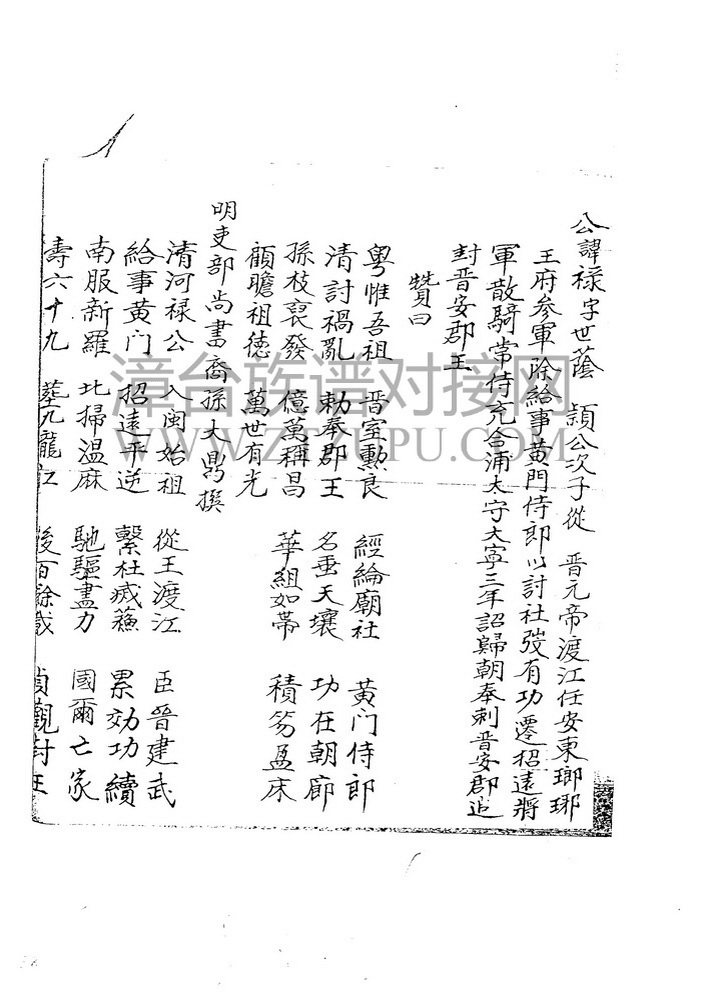 公諱祿字世蔭 頴公次子從 晋元帝渡江任安東瑯琊
王府參軍除給事黃門侍郎以討杜弢有功遷招遠將
軍散騎常侍充合浦太守大寧三年詔歸朝奉刺晋安郡追
封晋安郡王
贊曰
粤惟吾祖 晋室勳良 經綸廟社 黃门侍郎
清討禍亂 勅奉郡王 名垂天壤 功在朝廊
孫枝裒發 億萬稱昌 華組如蒂 積笏盈床
顧瞻祖德 萬世有光
明吏部尚書裔孫大鼎撰
清河祿公 入闽始祖 從王渡江 臣晉建武
給事黃门 招遠平逆 繫杜威 累効功續
南服新羅 北掃温麻 馳驅盡力 國爾亡家
壽六十九 葬九龍江 後百餘歲 貞觀封王
漳台族谱对接网
WWW.ZTZUPU.COM